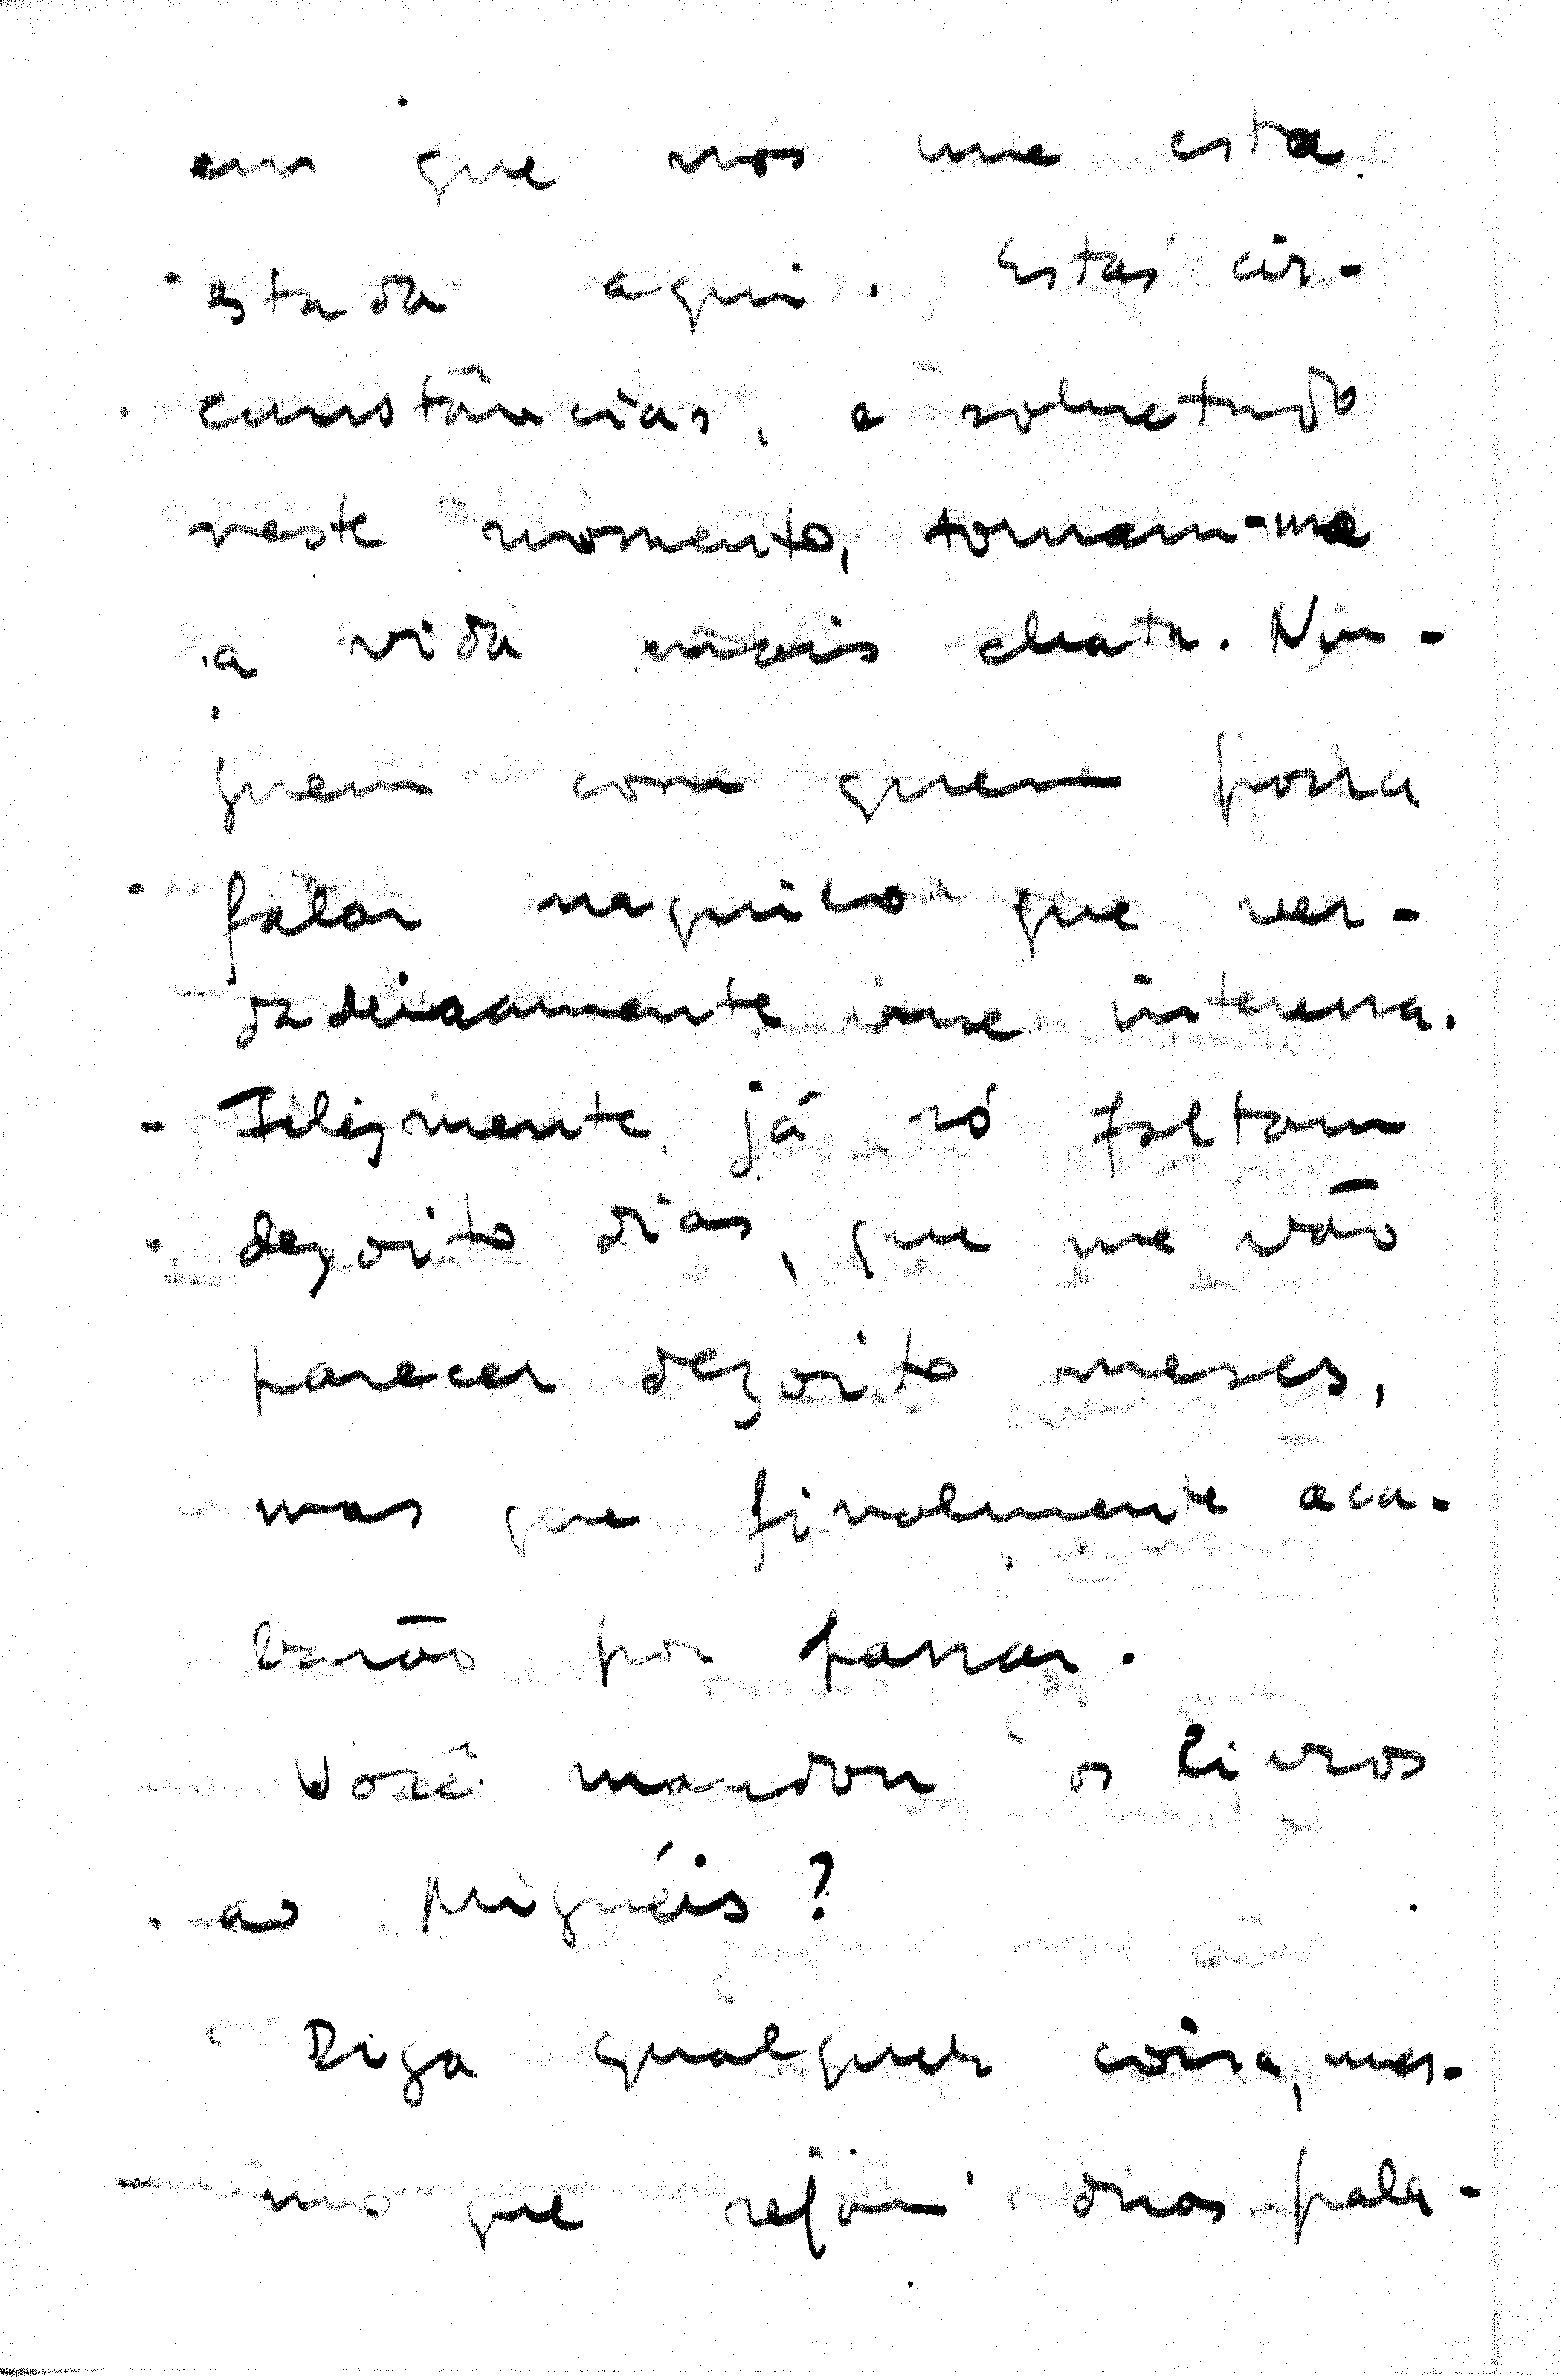 em que nos une esta
estada aqui. Estas cir-
cunstâncias, e sobretudo
neste momento, tornam-me
a vida mais chata. Nin-
guem com quem possa
falar naquilo que ver-
dadeiramente me interessa.
Felizmente já só faltam
dezoito dias, que me vão
parecer dezoito meses,
mas que finalmente aca-
barão por passar.
Você mandou os livros
ao Miguéis?
Diga qualquer coisa, mes-
mo que sejam duas pala-